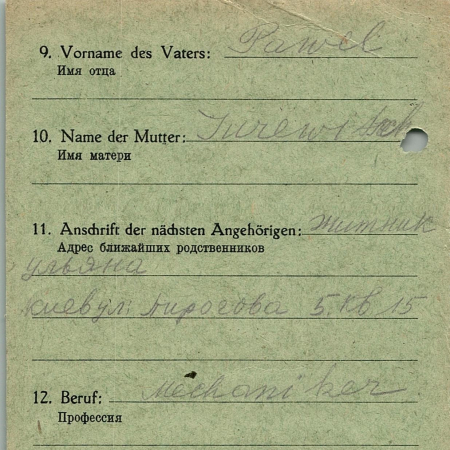 9. Vorname des Vaters: Pawel
Имя отца
10. Name der Mutter: Jurewitsch
Имя матери
11. Anschrift der nächsten Angehörigen: Житник
Адрес ближайших родственников
ульяна
киев ул: Пирогова 5. кв 15
12. Beruf: Mechaniker
Профессия